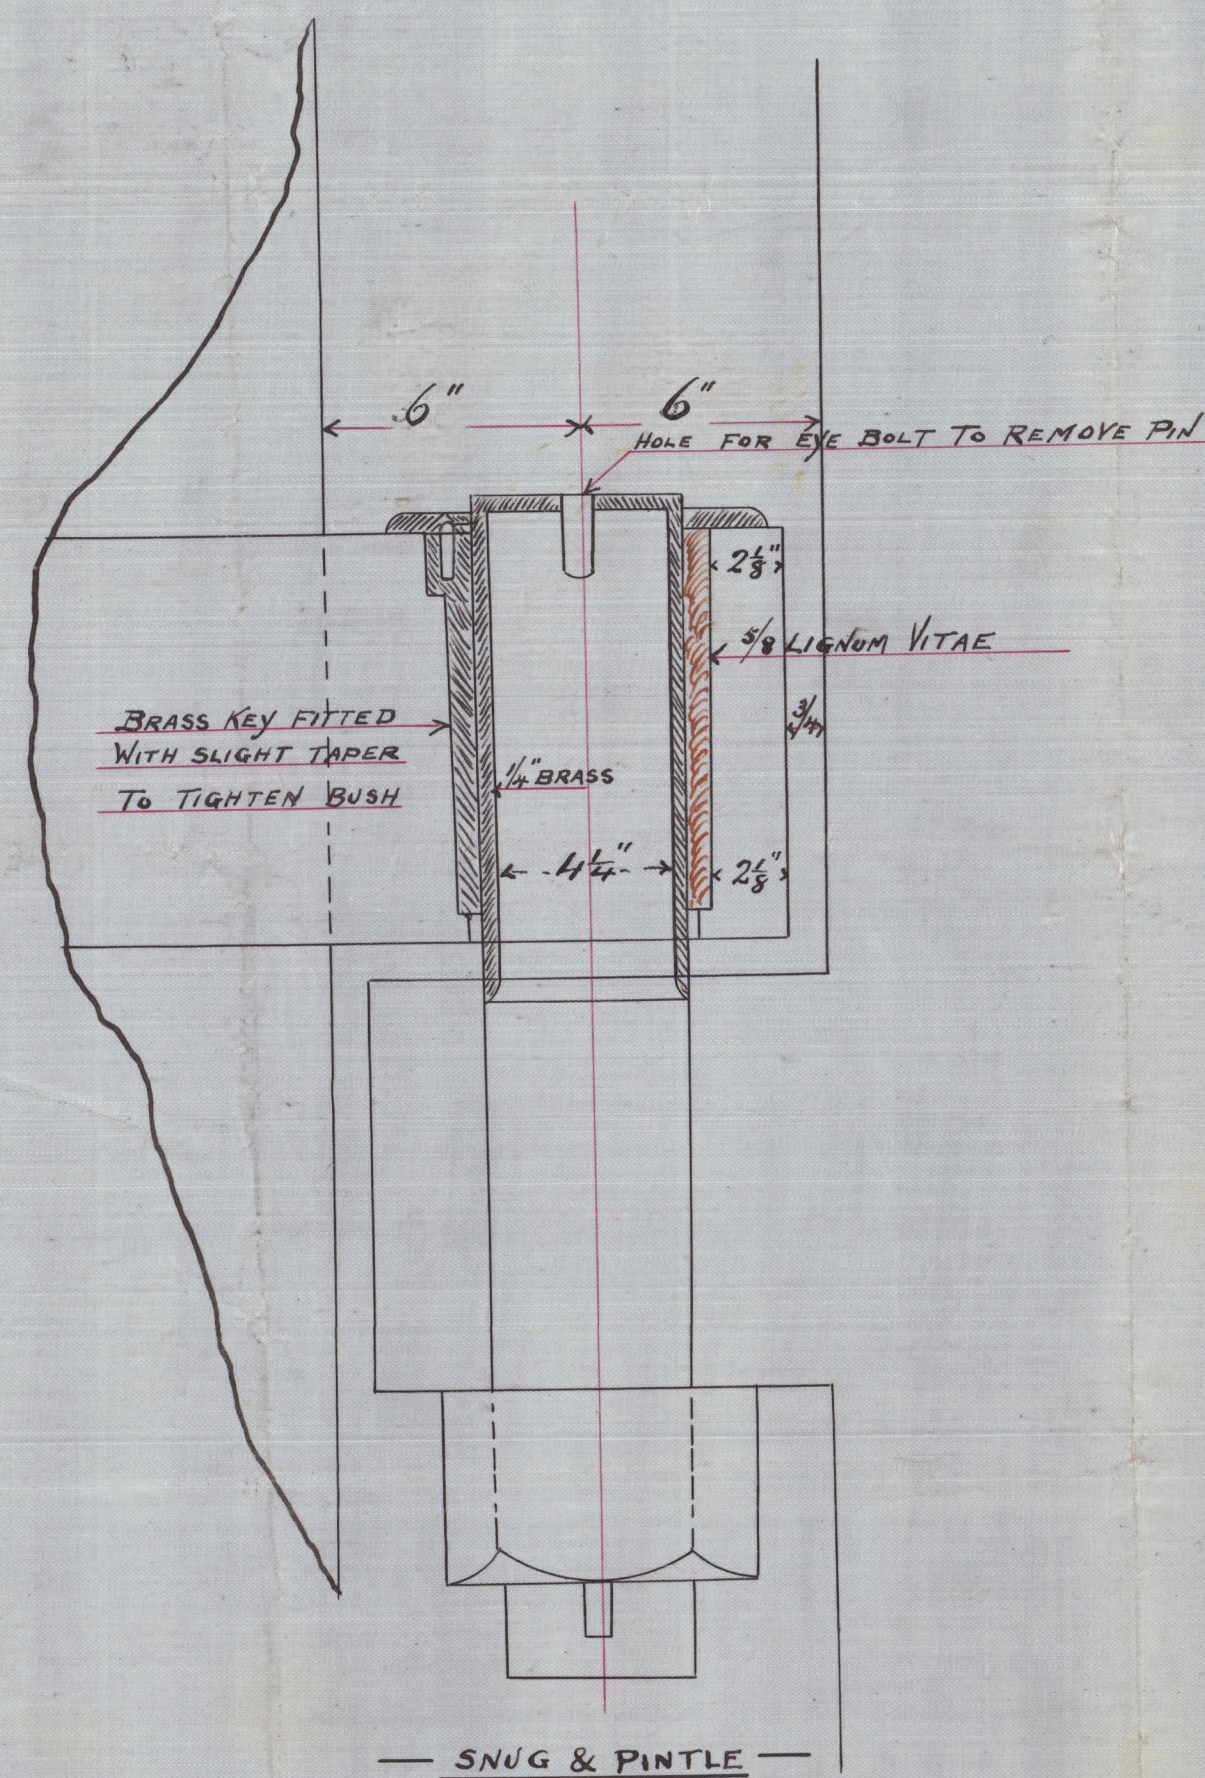 6" 6"
HOLE FOR EYE BOLT TO REMOVE PIN
2 1/8"
5/8 LIGNUM VITAE
BRASS KEY FITTED
WITH SLIGHT TAPER
TO TIGHTEN BUSH
3/4
1/4" BRASS
4 1/4" 2 1/8"
— SNUG & PINTLE —